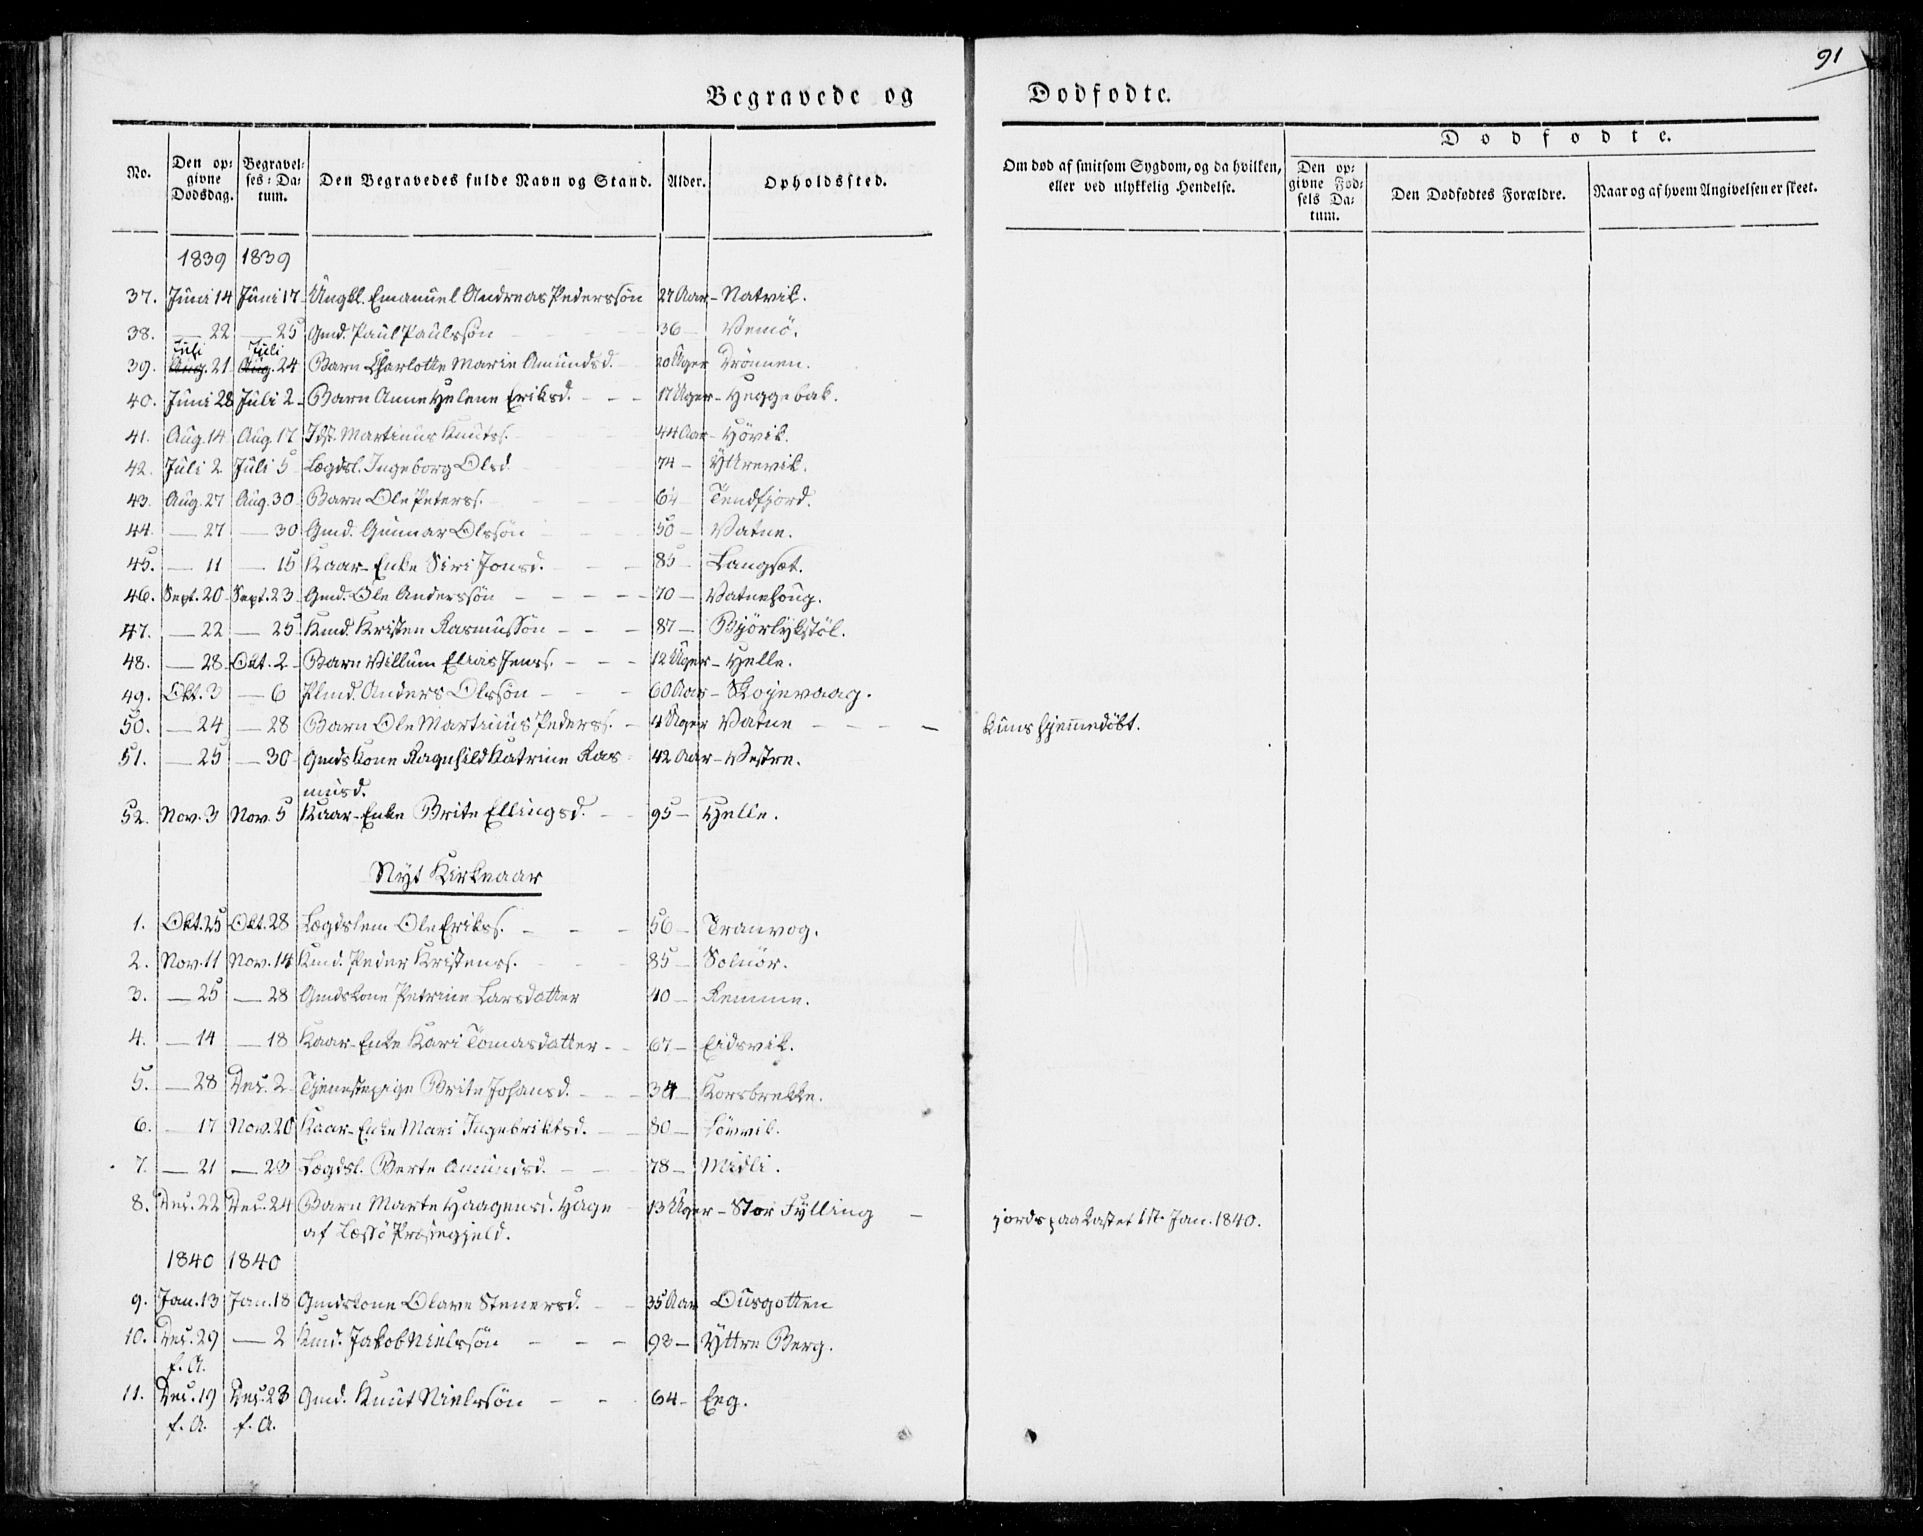 91
Begravede og Dødfødte.
No. Den opgivne Dødsdag. Begravelses-Datum. Den Begravedes fulde Navn og Stand. Alder. Opholdssted. Om død af smitsom Sygdom, og da hvilken, eller ved ulykkelig Hendelse. Dødfødte. Den opgivne Fødsels Datum. Den Dødfødtes Forældre. Naar og af hvem Angivelsen er skeet.
1839 1839
37. Juni 14 Juni 17 Ungkl. Emanuel Andreas Pederssøn 27 Aar - Natvik.
38. — 22 — 25 Gmd. Paul Paulssøn 36 — Vemø.
Juli Juli
39. Aug. 21 Aug. 24 Barn Charlotte Marie Amundsd. 20 Uger Drønnen.
40. Juni 28 Juli 2 Barn Anne Helene Eriksd. 17 Uger - Heggebak.
41. Aug. 14 Aug. 17 Idst. Martinus Knuts. 44 Aar - Høvik.
42. Juli 2 Juli 5 Lægdsl. Ingeborg Olsd. 74 — Yttrevik.
43. Aug. 27 Aug. 30 Barn Ole Peters. 6¼ Tendfjord.
44. — 27 — 30 Gmd. Gunnar Olssøn 50 — Vatne.
45. — 11 — 15 Kaar-Enke Siri Jonsd. 85 — Langsæt.
46. Sept. 20 Sept. 23 Gmd. Ole Anderssøn 70 — Vatnehoug.
47. — 22 — 25 Kmd. Kristen Rasmussøn 87 — Bjørlykstøl.
48. — 28 Okt. 2 Barn Villum Elias Jens. 12 Uger - Helle.
49. Okt. 3 — 6 Plmd. Anders Olssøn 60 Aar - Skojevaag.
50. — 24 — 28 Barn Ole Martinus Peders. 4 Uger Vatne Kuns hjemmedøbt.
51. — 25 — 30 Gmdskone Ragnhild Katrine Ras 42 Aar - Vestre.
musd.
52. Nov. 3 Nov. 5 Kaar-Enke Brite Ellingsd. 95 — Helle.
Nyt Kirkeaar
1. Okt. 25 Okt. 28 Lægdslem Ole Eriks. 56 — Tranvog.
2. Nov. 11 Nov. 14 Kmd. Peder Kristens. 85 — Solnør.
3. — 25 — 28 Gmdskone Petrine Larsdatter 40 — Remme.
4. — 14 — 18 Kaar-Enke Kari Tomasdatter 67 — Eidsvik.
5. — 28 Des. 2 Tjenestepige Brite Johansd. 34 — Korsbrekke.
6. — 17 Nov. 20 Kaar-Enke Mari Ingebriktsd. 80 — Løvvik.
7. — 21 — 29 Lægdsl. Berte Amundsd. 78 — Midli.
8. Des. 22 Des. 24 Barn Marte Haagensd. Hage 13 Uger - Stor Fylling jords paa kastet 17 Jan. 1840.
af Læssø Præstegjeld.
1840 1840
9. Jan. 13 Jan. 18 Gmdskone Olave Stenersd. 35 Aar Ousgotten
10. Des. 29 — 2 Kmd. Jakob Nielssøn 93 — Yttre Berg.
f. A.
11. Des. 19 Des. 23 Gmd. Knut Nielssøn 64 — Eeg.
f. A. f. A.